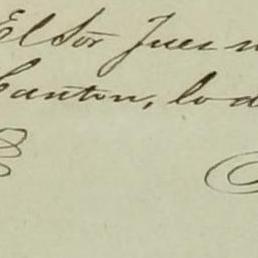 El Sor Juez
Canton, lo